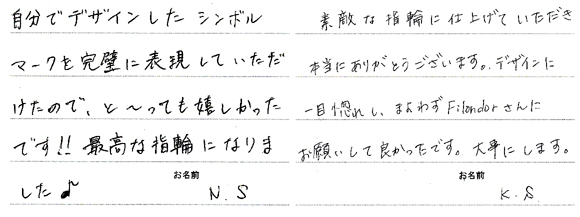 自分でデザインした シンボル
マークを完璧に表現していただ
けたので、と〜っても嬉しかった
です!! 最高な指輪になりま
お名前
した♪ N.S
素敵な指輪に仕上げていただき
本当にありがとうございます。デザインに
一目惚れし、まよわずFilondorさんに
お願いして良かったです。大事にします。
お名前
K.S